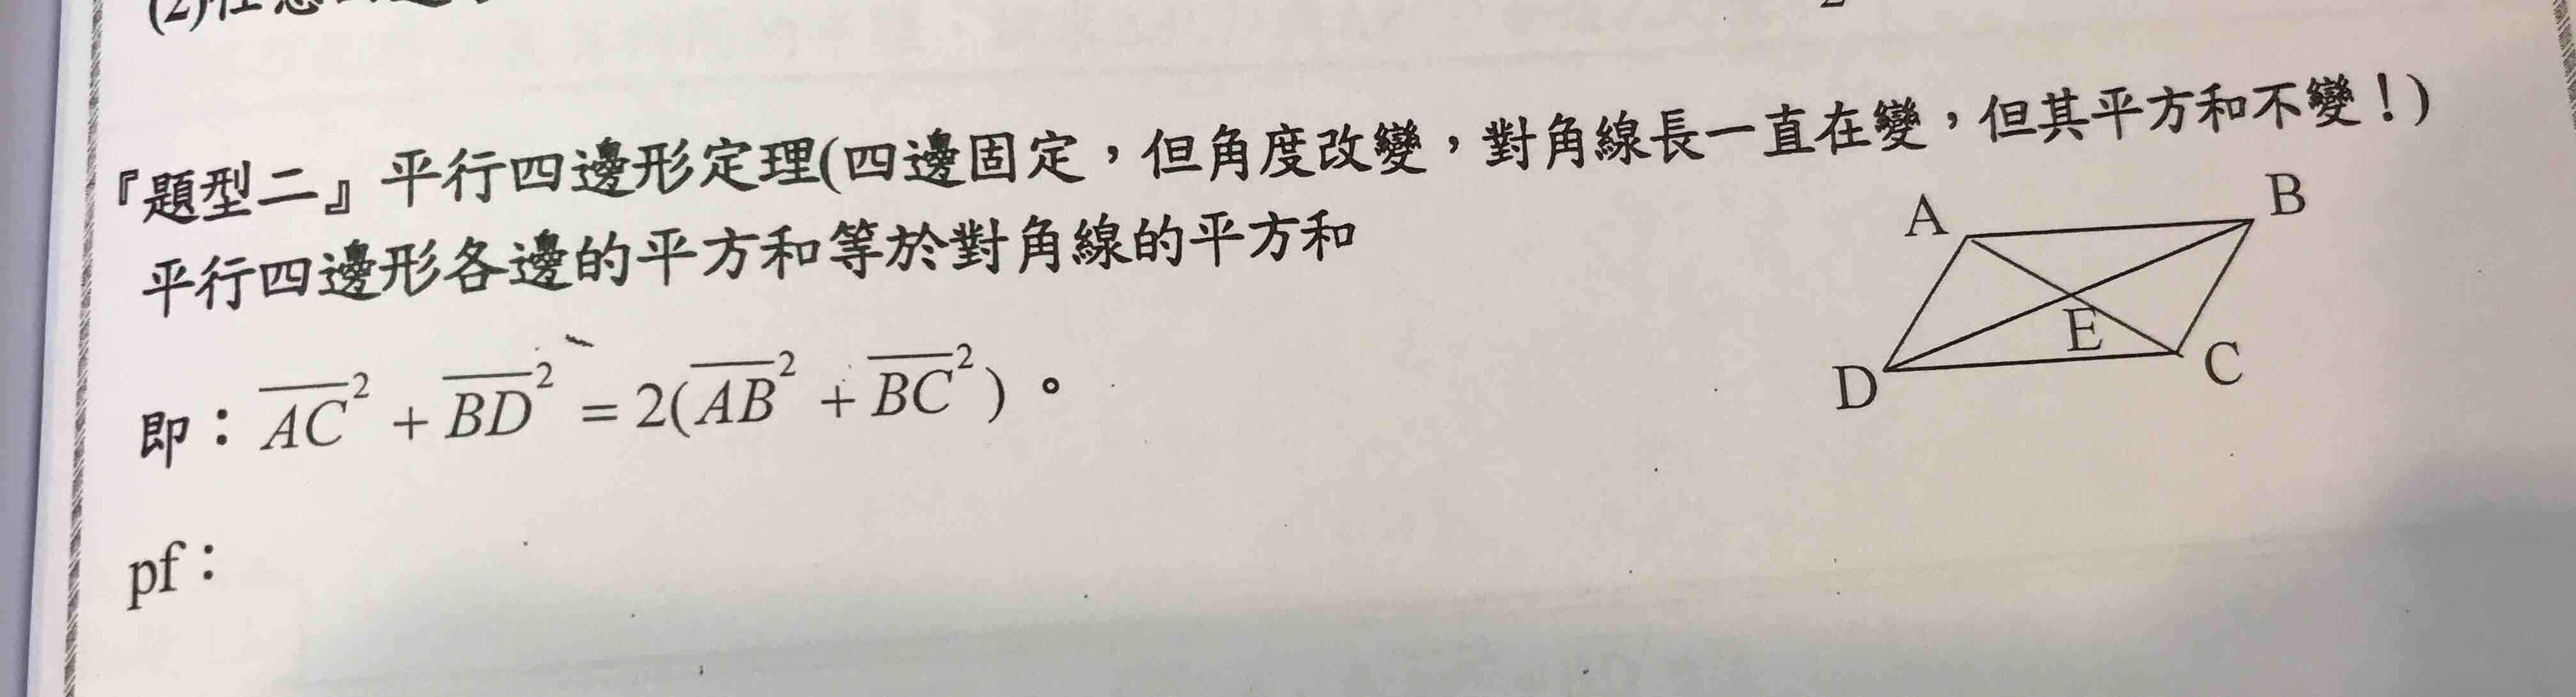 『題型二』平行四邊形定理(四邊固定，但角度改變，對角線長一直在變，但其平方和不變！)
平行四邊形各邊的平方和等於對角線的平方和
即：$\overline{AC}^2 + \overline{BD}^2 = 2(\overline{AB}^2 + \overline{BC}^2)$。
A
B
E
D
C
pf：